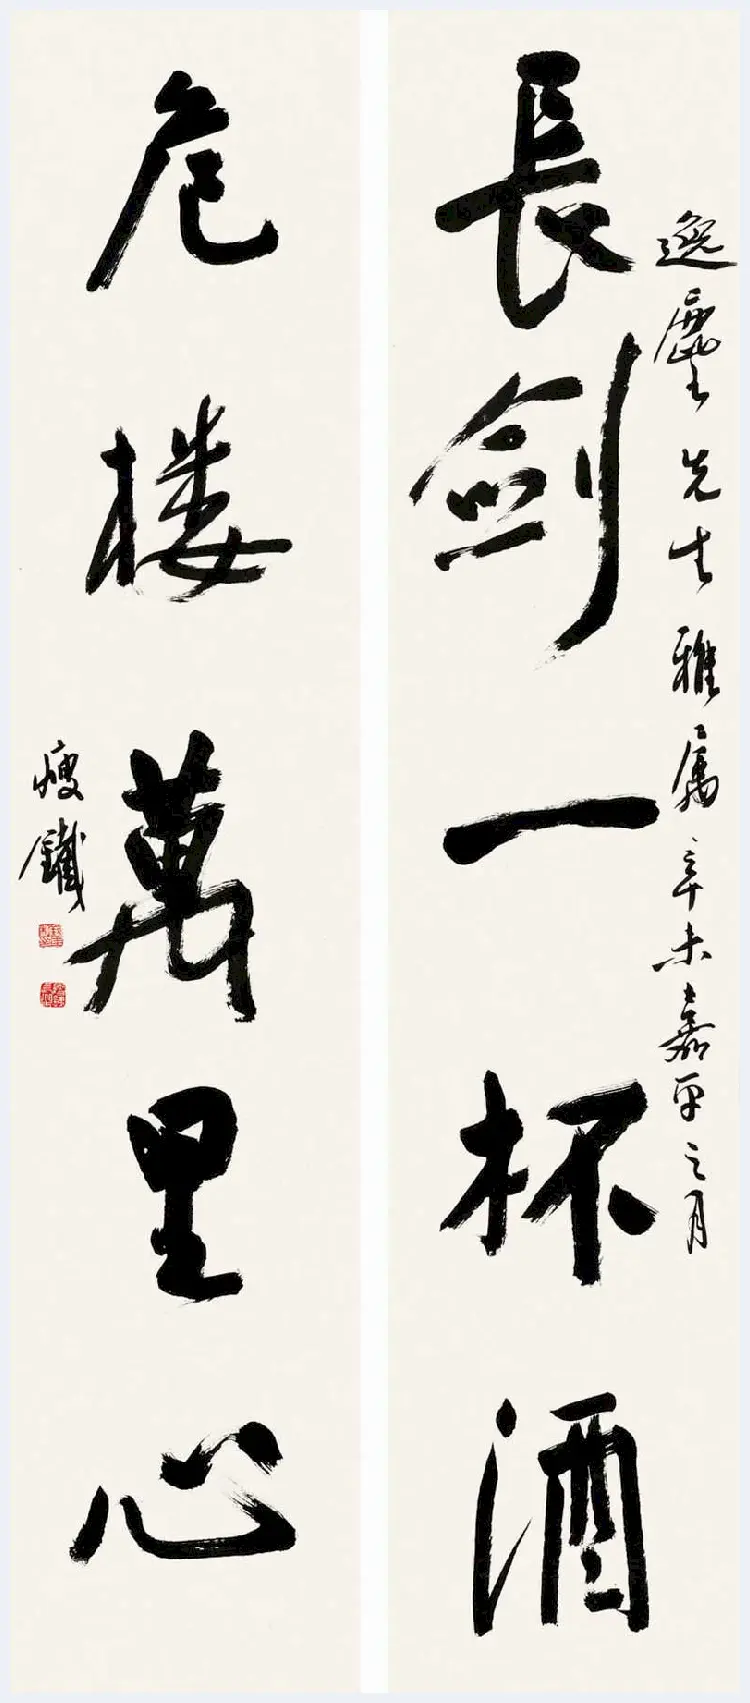 逸塵先生雅属辛未嘉平之月
長剑一杯酒
危楼萬里心
瘦鐵